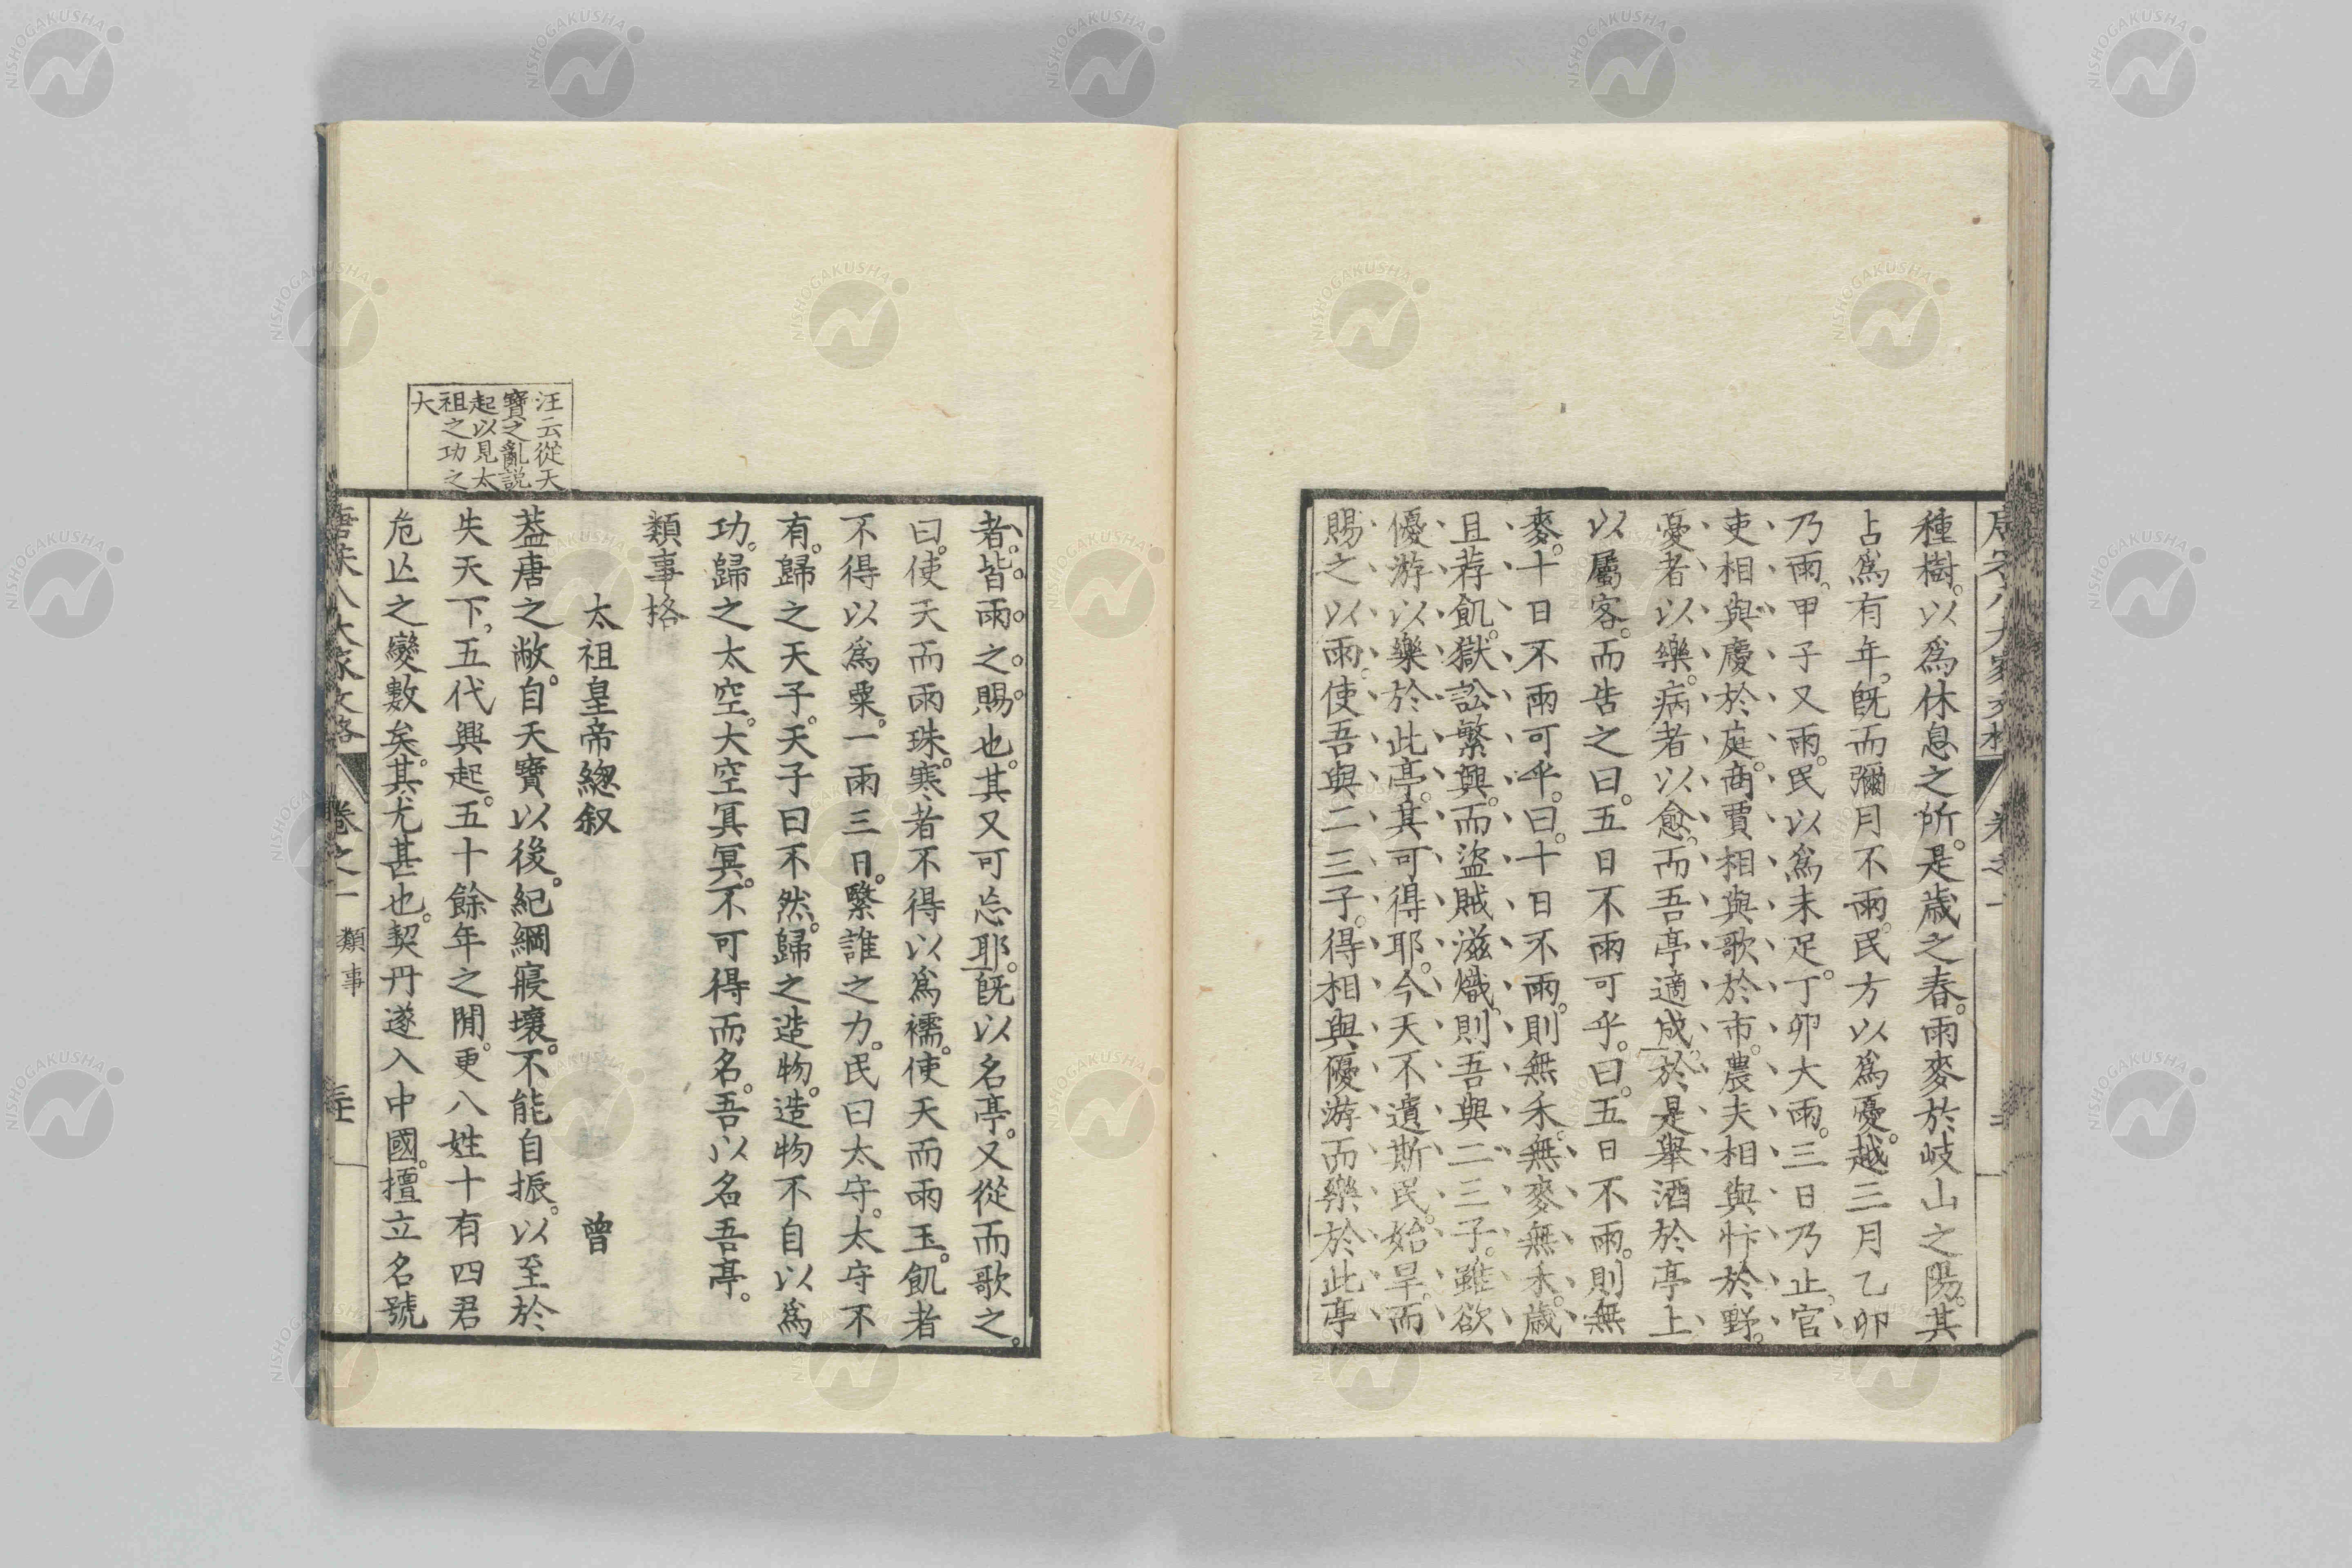 種樹。以爲休息之所。是歳之春。雨麥於岐山之陽。其
占爲有年。旣而彌月不雨。民方以爲憂。越三月乙卯
乃雨。甲子又雨。民以爲未足。丁卯大雨。三日乃止。官
吏相與慶於庭。商賈相與歌於市。農夫相與忭於野。
憂者以樂。病者以愈。而吾亭適成。於是舉酒於亭上
以屬客。而告之曰。五日不雨可乎。曰。五日不雨。則無
麥。十日不雨可乎。曰。十日不雨。則無禾。無麥無禾。歳
且荐飢。獄訟繁興。而盜賊滋熾。則吾與二三子。雖欲
優游以樂於此亭。其可得耶。今天不遺斯民。始旱。而
賜之以雨。使吾與二三子。得相與優游而樂於此亭
者。皆雨之賜也。其又可忘耶。旣以名亭。又從而歌之。
曰。使天而雨珠。寒者不得以爲襦。使天而雨玉。飢者
不得以爲粟。一雨三日。繄誰之力。民曰太守。太守不
有。歸之天子。天子曰不然。歸之造物。造物不自以爲
功。歸之太空。大空冥冥。不可得而名。吾以名吾亭。
類事格
太祖皇帝緫叙 曾
葢唐之敝。自天寶以後。紀綱寢壞。不能自振。以至於
失天下。五代興起。五十餘年之閒。更八姓十有四君
危亾之變數矣。其尤甚也。契丹遂入中國。擅立名號
汪云從天
寶之亂説
起以見太
祖之功之
大
唐宋八大家文格 卷之一 類事
NISHOGAKUSHA